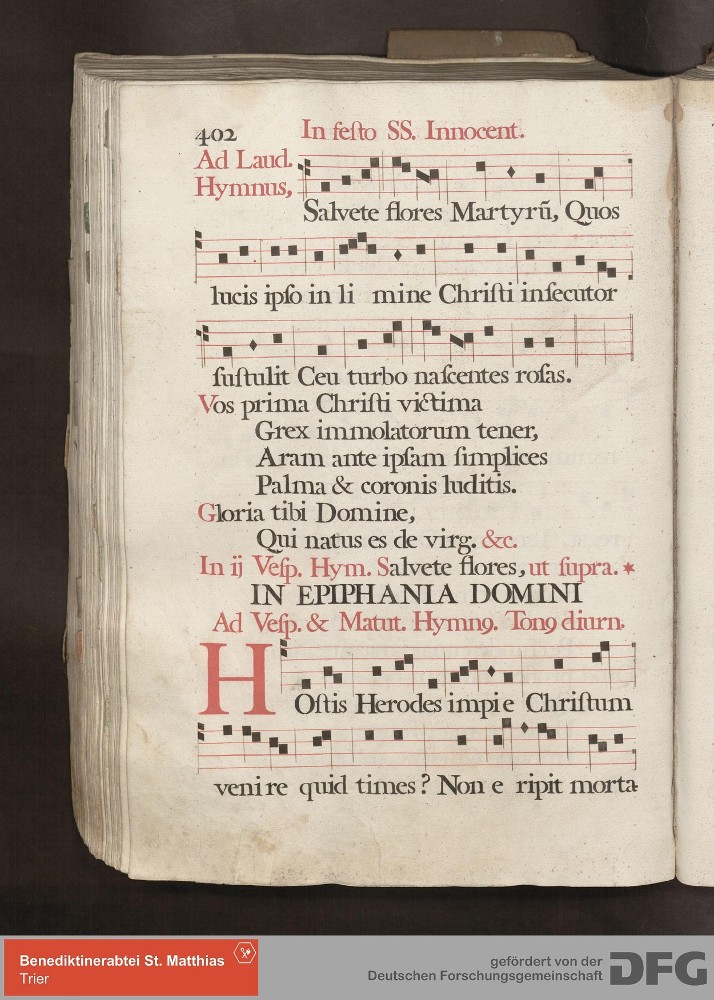 402 In festo SS. Innocent.
Ad Laud.
Hymnus,
Salvete flores Martyrũ, Quos
lucis ipso in li mine Christi insecutor
sustulit Ceu turbo nascentes rosas.
Vos prima Christi victima
Grex immolatorum tener,
Aram ante ipsam simplices
Palma & coronis luditis.
Gloria tibi Domine,
Qui natus es de virg. &c.
In ij Vesp. Hym. Salvete flores, ut supra. *
IN EPIPHANIA DOMINI
Ad Vesp. & Matut. Hymnꝯ. Tonꝯ diurn.
HOstis Herodes impie Christum
veni re quid times? Non e ripit morta-
Benediktinerabtei St. Matthias
Trier
gefördert von der
Deutschen Forschungsgemeinschaft DFG